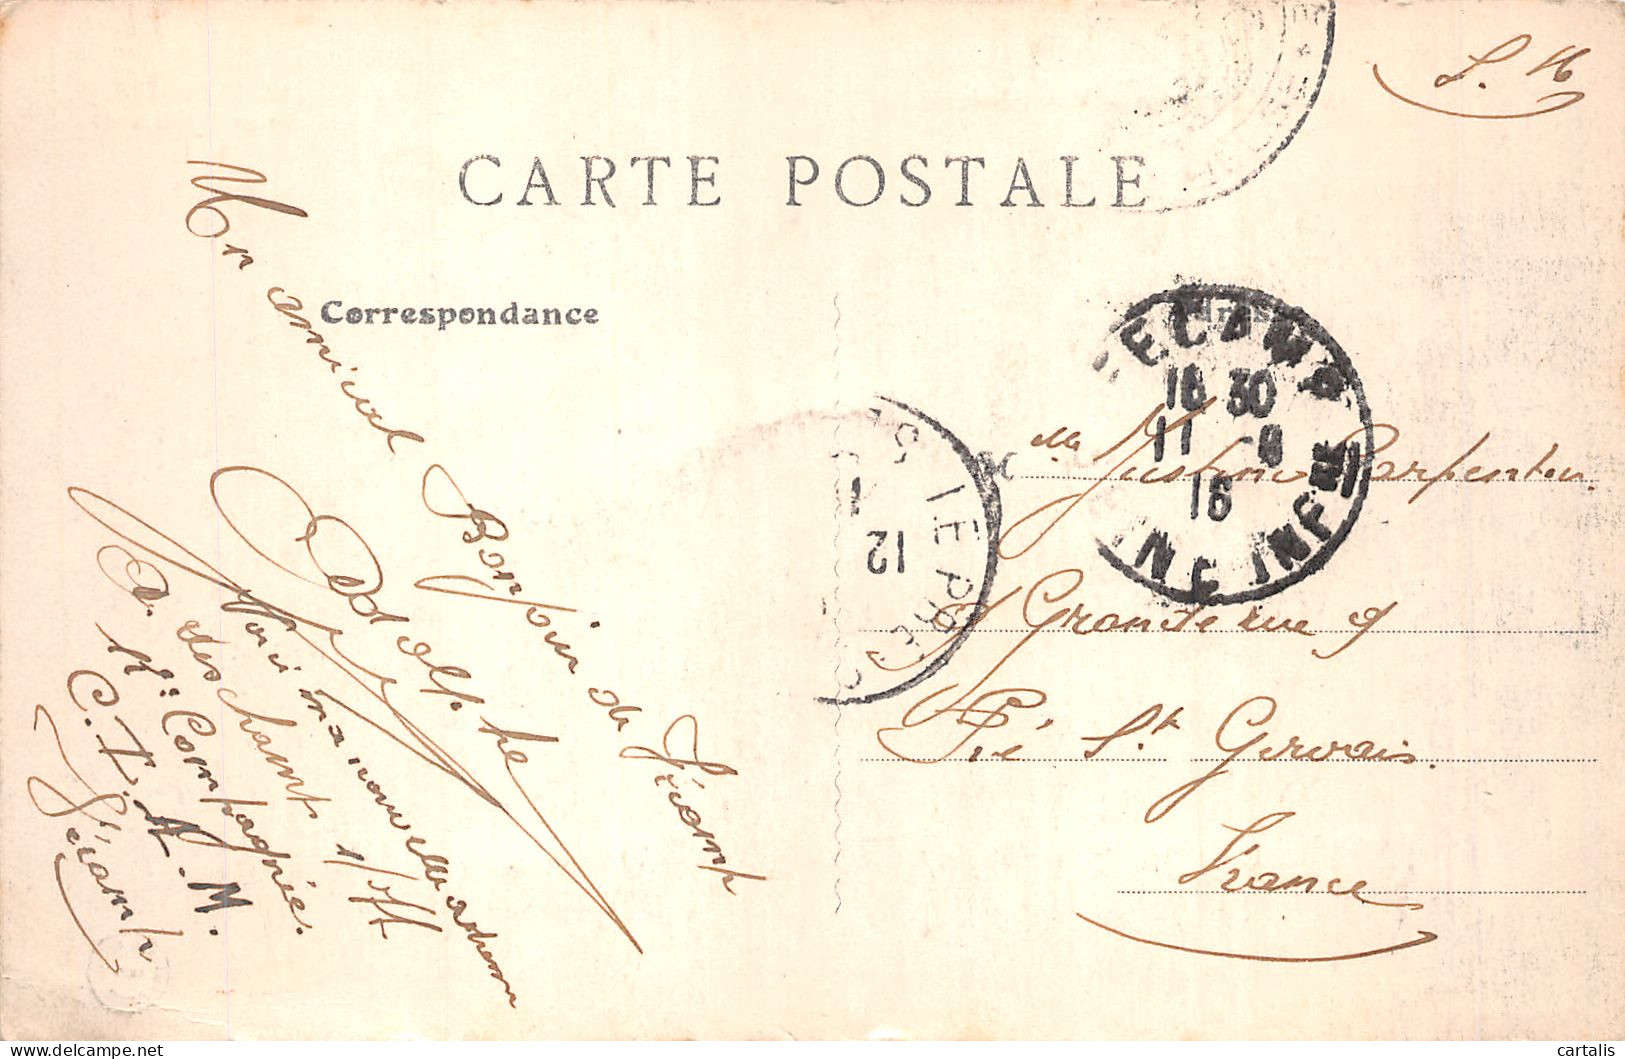 CARTE POSTALE
S. M
Correspondance
Un amical Bonjour de Fécamp
Adolphe
Voici ma nouvelle adresse
A. Deschamps
1re Compagnie.
C. I. A. M.
Fécamp
FECAMP
18 30
11 -8
16
INF
12
Melle Justine Carpentier
9 Grande rue 9
Pré St Gervais.
France
cartalis